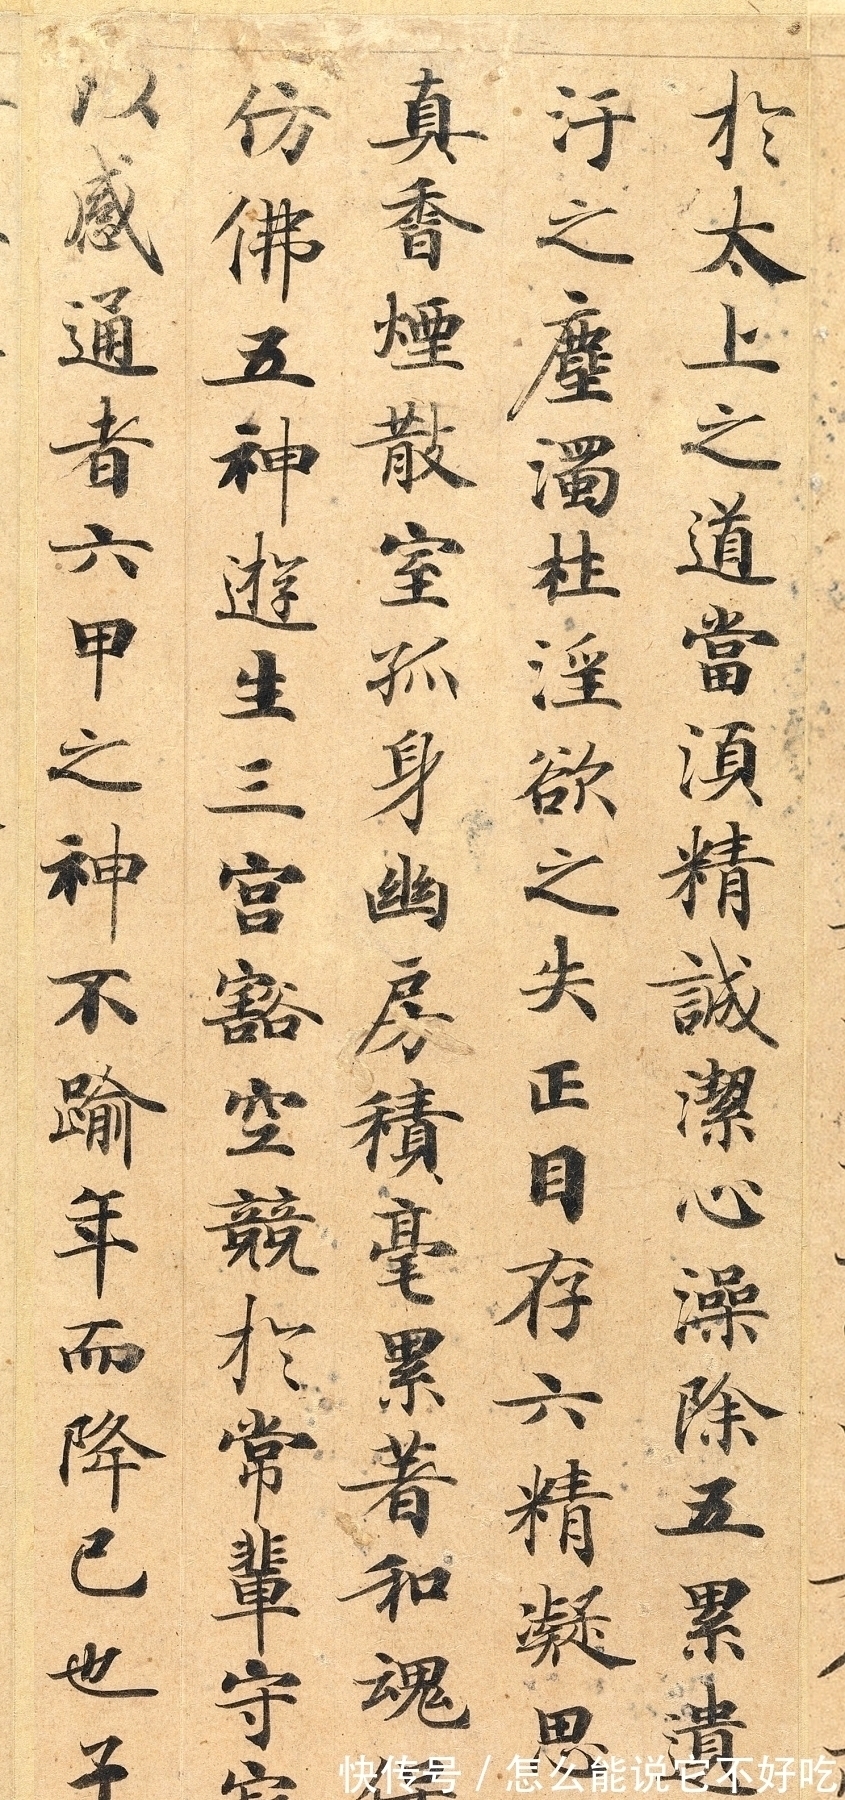 於太上之道當湏精誠潔心澡除五累遺
汙之塵濁杜淫欲之失正目存六精凝思
真香煙散室孤身幽房積毫累著和魂
仿佛五神遊生三宫豁空競於常輩守
以感通者六甲之神不踰年而降已也子
快传号 / 怎么能说它不好吃